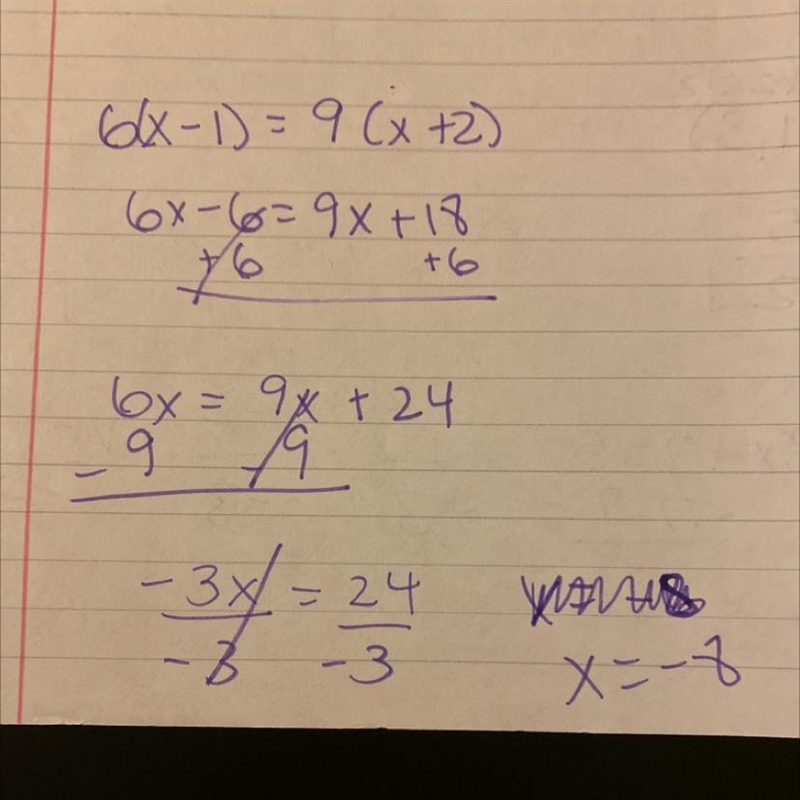 6(x-1) = 9(x+2)
6x-6 = 9x+18
+6 +6
6x = 9x + 24
-9 -9
-3x = 24
-3 -3
x = -8